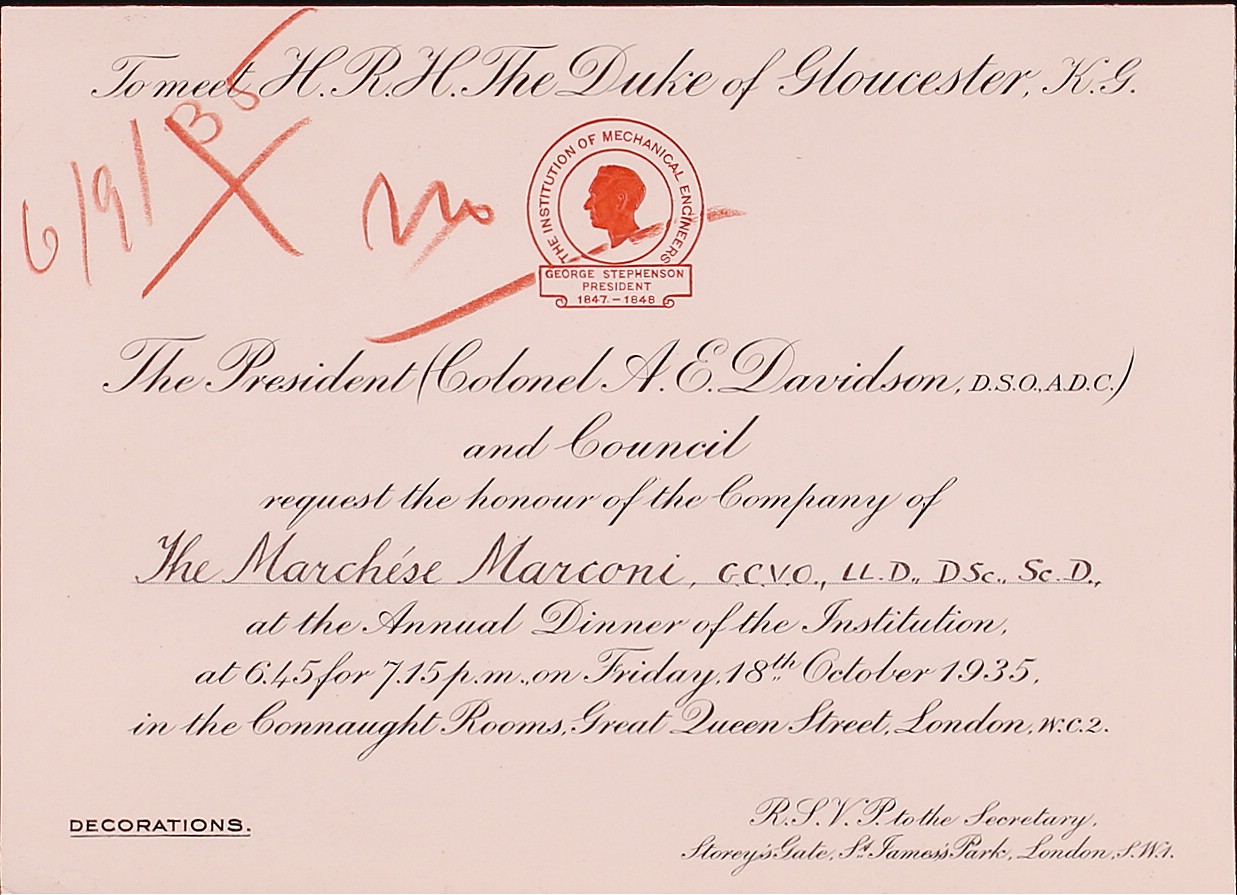 To meet H.R.H. The Duke of Gloucester, K.G.
6/9/35
no
THE INSTITUTION OF MECHANICAL ENGINEERS
GEORGE STEPHENSON
PRESIDENT
1847.–1848
The President (Colonel A.E. Davidson, D.S.O., A.D.C.)
and Council
request the honour of the Company of
The Marchése Marconi, G.C.V.O., LL.D., D Sc., Sc.D.,
at the Annual Dinner of the Institution,
at 6.45 for 7.15 p.m., on Friday, 18th October 1935,
in the Connaught Rooms, Great Queen Street, London, W.C.2.
DECORATIONS.
R.S.V.P. to the Secretary,
Storey's Gate, St James's Park, London, S.W.1.